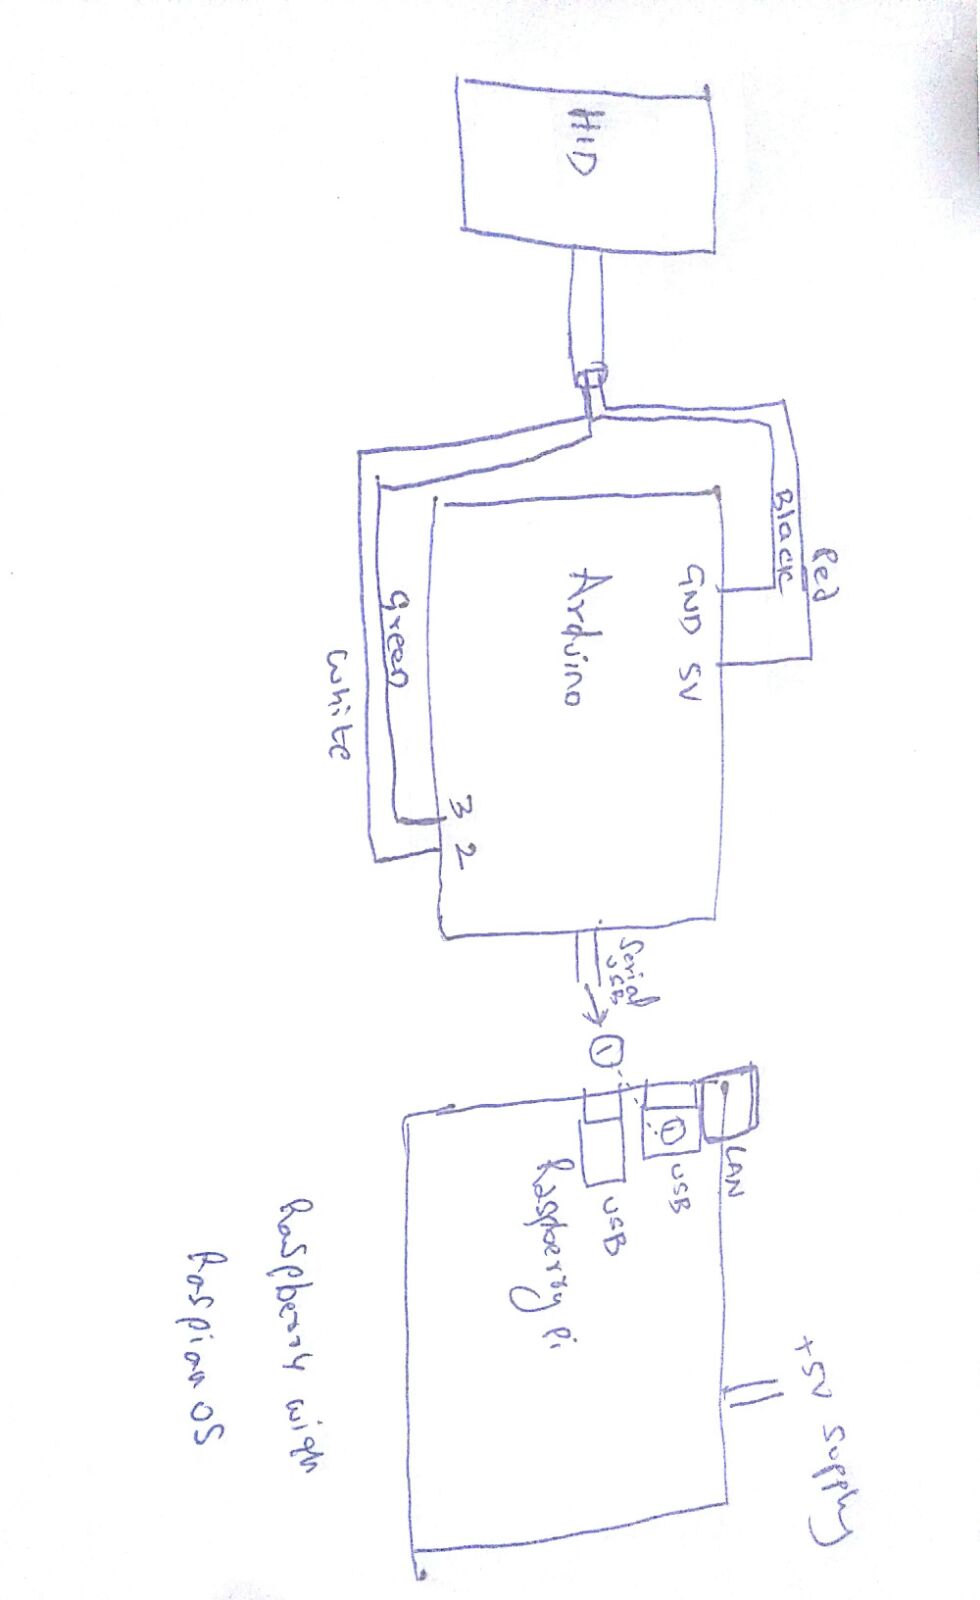 HID
Red
Black
GND 5V
Arduino
3 2
Green
White
Serial
USB
1
LAN
1
USB
USB
Raspberry Pi
+5V Supply
Raspberry with
Raspian OS